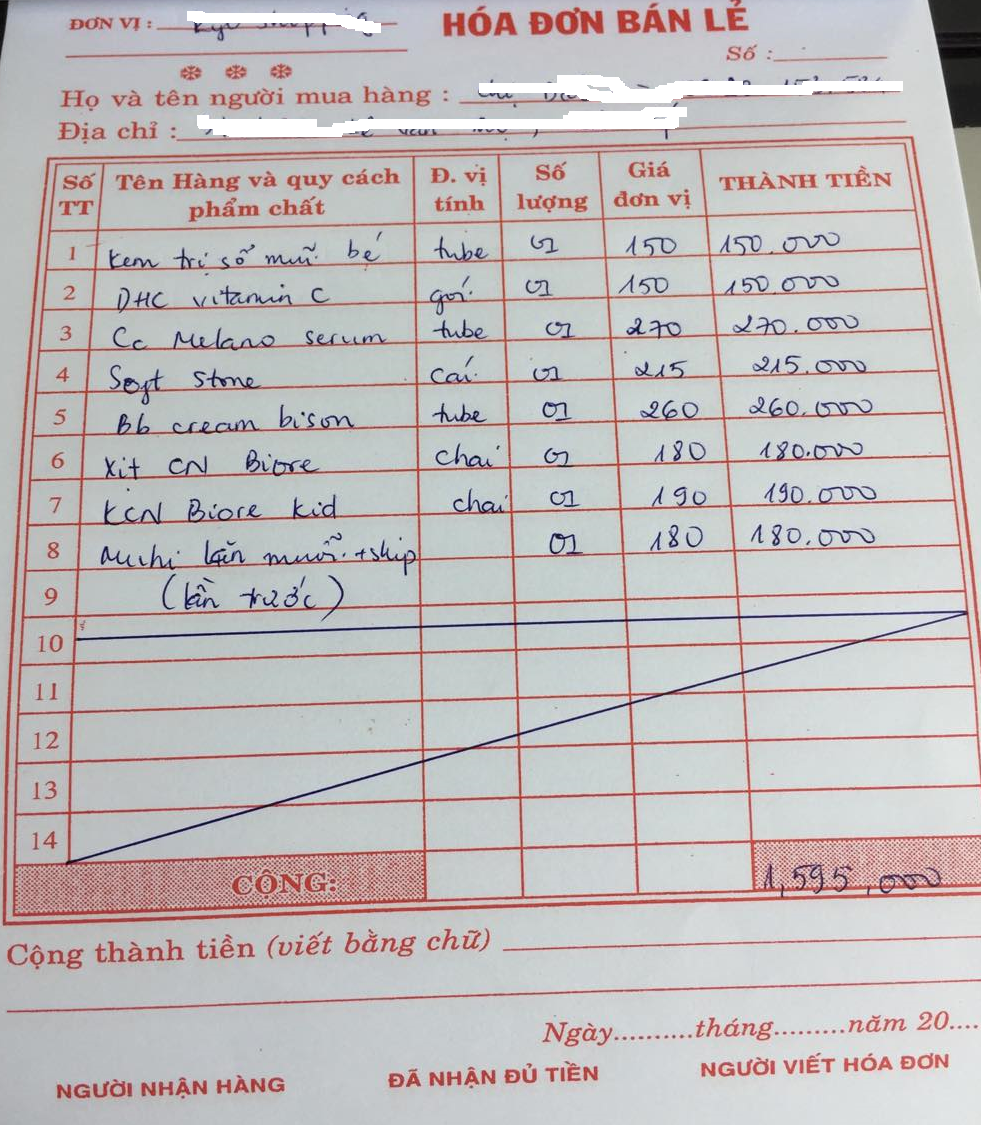 ĐƠN VỊ :
HÓA ĐƠN BÁN LẺ
Số :
Họ và tên người mua hàng :
Địa chỉ :
Số TT Tên Hàng và quy cách phẩm chất Đ. vị tính Số lượng Giá đơn vị THÀNH TIỀN
1 Kem trị sổ mũi bé tube 01 150 150.000
2 DHC vitamin C gói 01 150 150.000
3 Cc Melano serum tube 01 270 270.000
4 Soft stone cái 01 215 215.000
5 Bb cream bison tube 01 260 260.000
6 Xịt CN Biore chai 01 180 180.000
7 KCN Biore kid chai 01 190 190.000
8 Muhi lăn muỗi + ship 01 180 180.000
9 (lần trước)
10
11
12
13
14
CỘNG: 1,595,000
Cộng thành tiền (viết bằng chữ)
Ngày..........tháng.........năm 20....
NGƯỜI NHẬN HÀNG ĐÃ NHẬN ĐỦ TIỀN NGƯỜI VIẾT HÓA ĐƠN